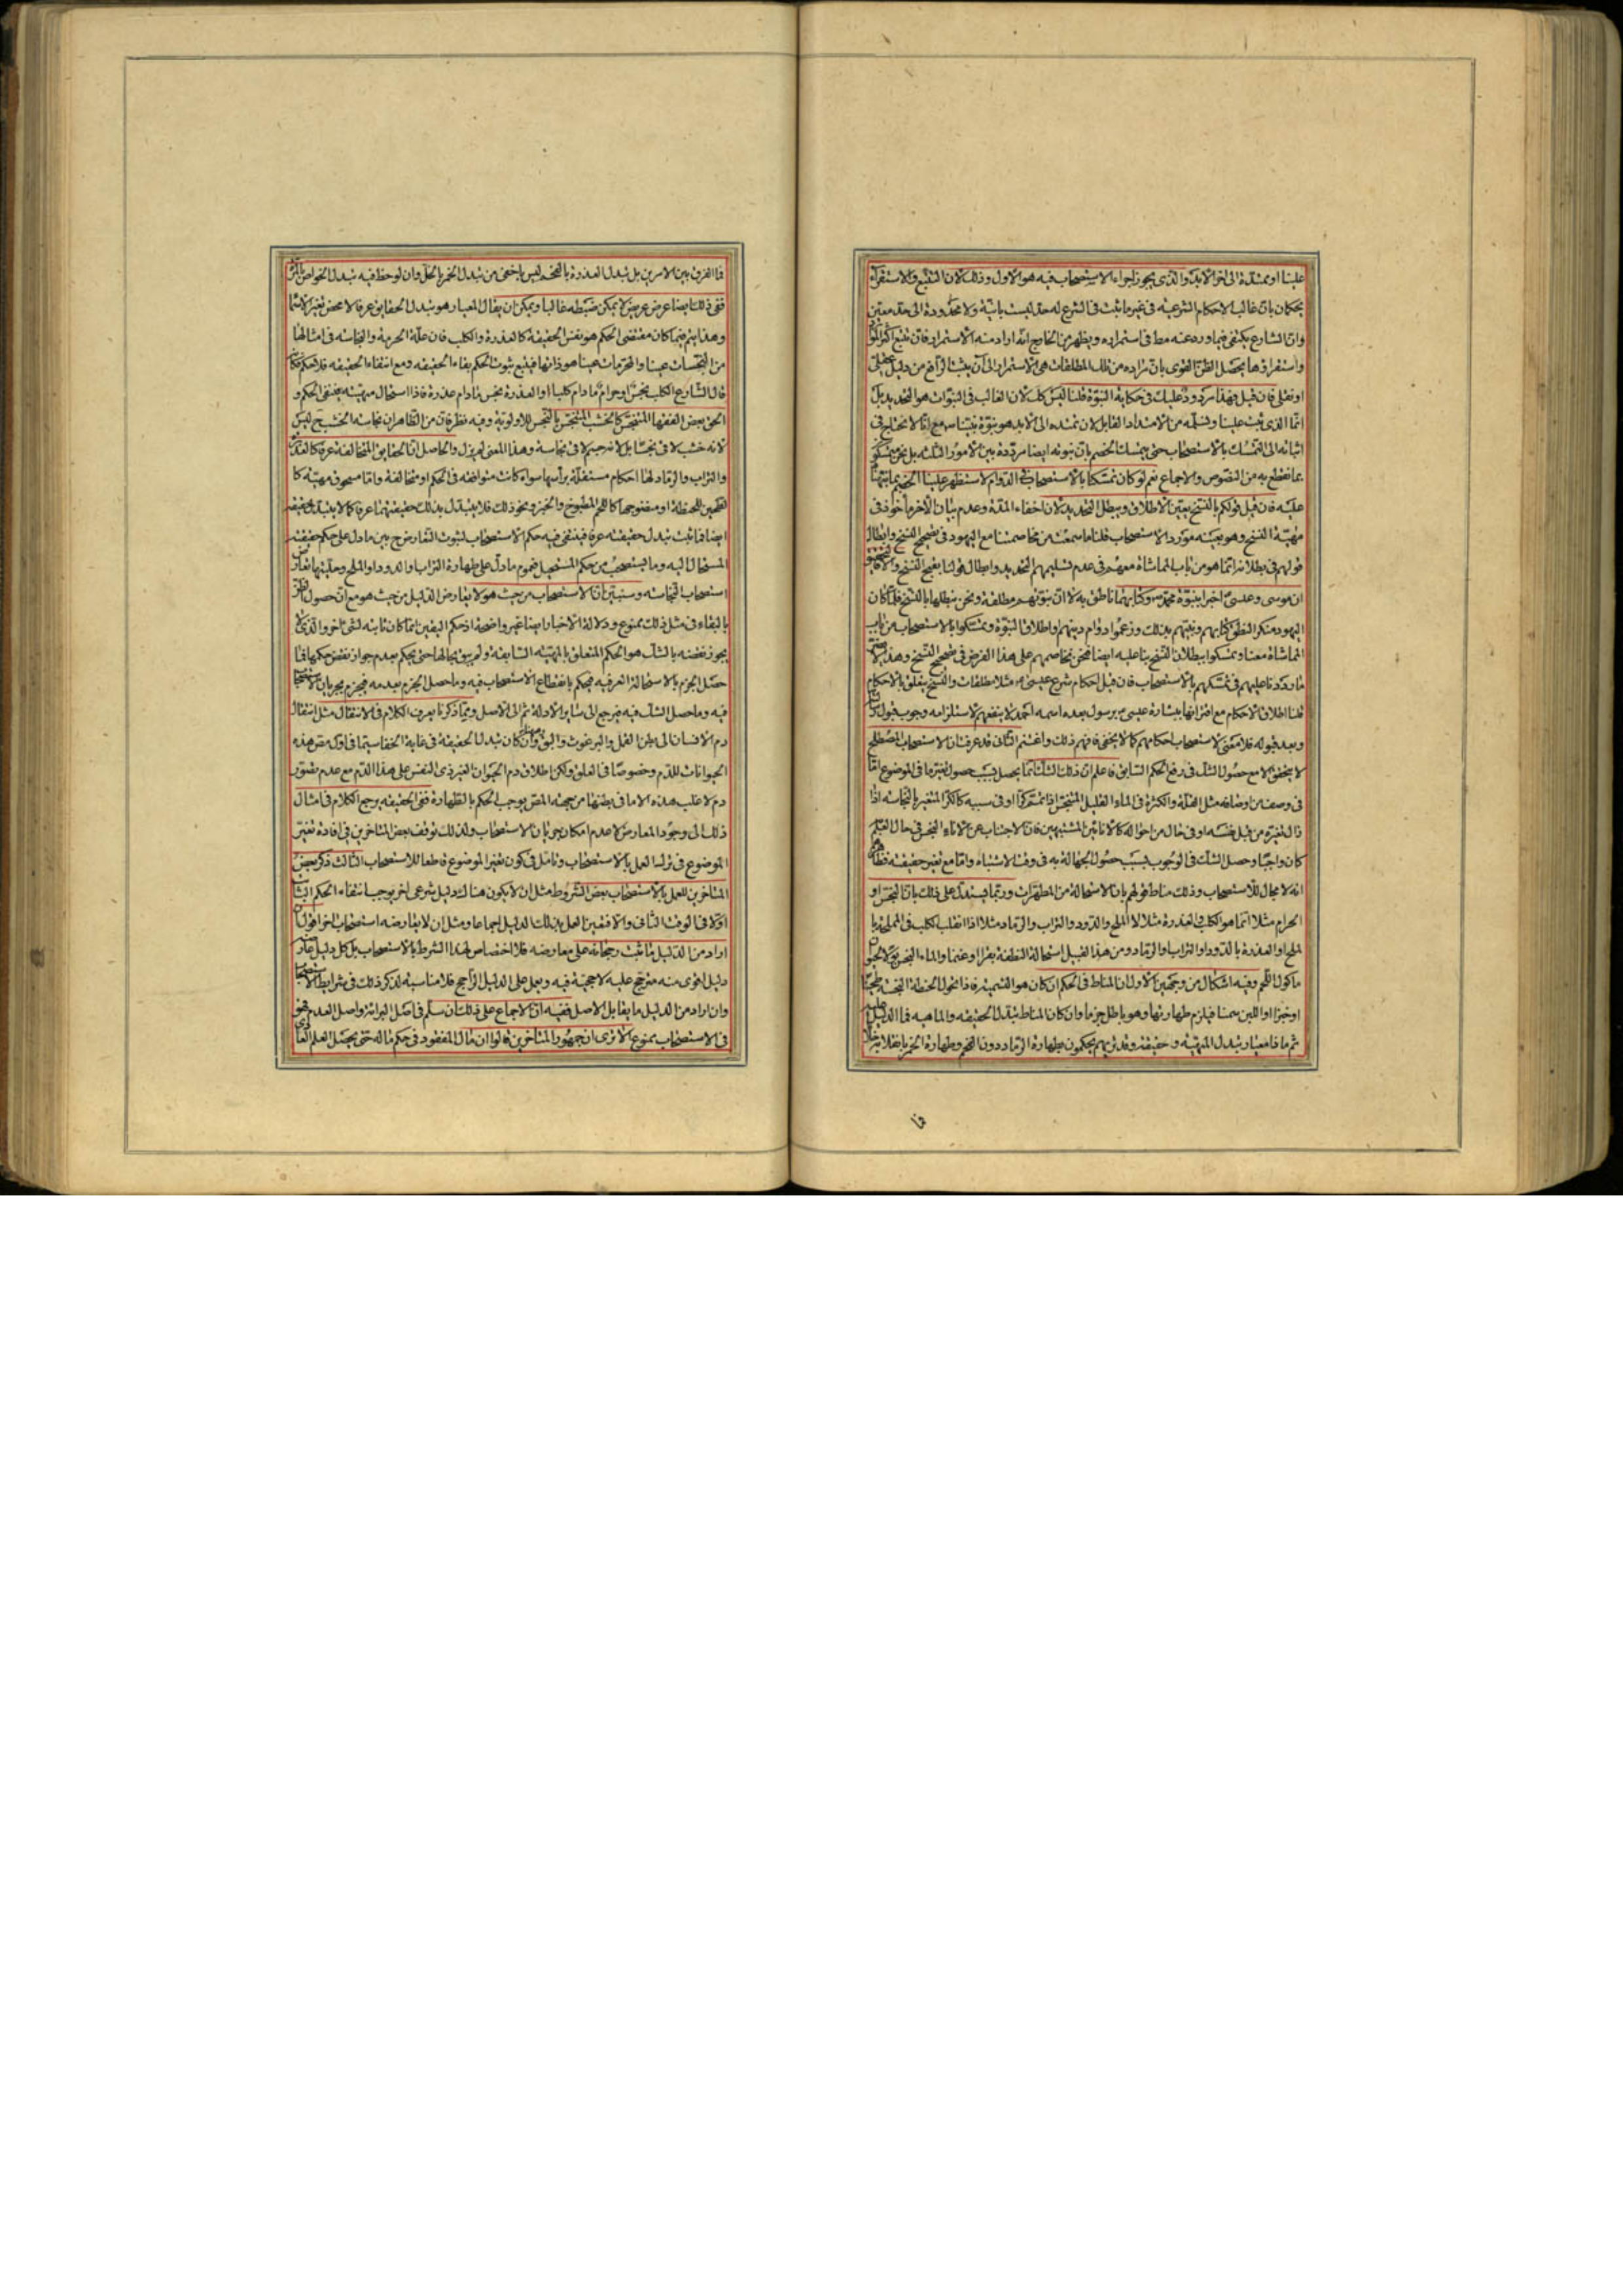 علينا او ممتدة الى اخر الابد والذى يجوز اجراء الاستصحاب فيه هو الاول وذلك لان التتبع والاستقراء
يحكمان بان غالب الاحكام الشرعية فى غير ما ثبت فى الشرع له حد ليست بانية ولا محدودة الى حد معين
وان الشارع يكتفى فيما ورد عنه مط فى استمراره ويظهر من الخارج انه اراد منه الاستمرار فان تتبع اكثر الموارد
واستقراؤها يحصل الظن القوى بان مراده من تلك المطلقات هى الاستمرار الى ان يثبت الرافع من دليل عقلى
او نقلى فان قيل فهذا مردود عليك فى حكاية النبوة قلنا ليس كك لان الغالب فى النبوات هو التحديد بل
انما الذى ثبت علينا ونسلمه من الامتداد القابل لان نمتده الى الابد هو نبوة نبينا ص مع انا لا نحتاج فى
اثباته الى التمسك بالاستصحاب حتى يتمسك الخصم بان نبوته ايضا مرددة بين الامور الثلثة بل نحن متمسكون
بما نقطع به من النصوص والاجماع نعم لو كان تمسكنا بالاستصحاب فى الدوام لاستظهر علينا الخصم بما نبهناه
عليه فان قيل قولكم بالنسخ يعين الاطلاق ويبطل التحديد لان اخفاء المدة وعدم بيان الاخر مأخوذ فى
مهية النسخ وهو بعينه مورد الاستصحاب قلنا ما سمعت من مخاصمتنا مع اليهود فى تصحيح النسخ وابطال
قولهم فى بطلانه انما هو من باب المماشاة معهم فى عدم تسليمهم التحديد وابطال قولنا بقبح النسخ والا فالتحقيق
ان موسى وعيسى اخبرا بنبوة محمد ص وكتابهما ناطق به لا ان نبوتهم مطلقة ونحن نبطلها بالنسخ فلما كان
اليهود منكر النطق كتابهم ونبيهم بذلك وزعموا دوام دينهم واطلاق النبوة وتمسكوا بالاستصحاب من باب
المماشاة معنا وتمسكوا ببطلان النسخ بنا عليه ايضا فنحن نخاصمهم على هذا الفرض فى تصحيح النسخ وهذا لا يضر
ما رددنا عليهم فى تمسكهم بالاستصحاب فان قيل احكام شرع عيسى ع مثلا مطلقات والنسخ يتعلق بالاحكام
قلنا اطلاق الاحكام مع اقترانها ببشارة عيسى ع برسول بعده اسمه احمد لا ينفعهم لاستلزامه وجوب قبول رسالته
وبعد قبوله فلا معنى لاستصحاب احكامهم كما لا يخفى فافهم ذلك واغتنم الثانى قد عرفت ان الاستصحاب المصطلح
لا يتحقق الا مع حصول الشك فى رفع الحكم السابق فاعلم ان ذلك الشك انما يحصل بسبب حصول تغير ما فى الموضوع اما
فى وصف من اوصافه مثل القلة والكثرة فى الماء القليل المتنجس اذا تمم كرا او فى سببه كالكر المتغير بالنجاسة اذا
زال تغيره من قبل نفسه او فى حال من احواله كالانائين المشتبهين فان الاجتناب عن الاناء النجس فى حال العلم
كان واجبا وحصل الشك فى الوجوب بسبب حصول الجهالة به فى وقت الاشتباه واما مع تغير حقيقته فظاهر
انه لا مجال للاستصحاب وذلك مناط قولهم بان الاستحالة من المطهرات وربما يستدل على ذلك بان النجس او
الحرام مثلا انما هو الكلب والعذرة مثلا لا الملح والدود والتراب والرماد مثلا اذا انقلب الكلب فى المملحة بالملح
او العذرة بالدود او التراب والرماد ومن هذا القبيل استحالة النطفة بقرا او غنما والماء النجس بولا لحيوان
ماكول اللحم وفيه اشكال من وجهين الاول ان المناط فى الحكم ان كان هو التسمية فاذا تحول الحنطة النجسة طحينا
او خبزا او اللبن سمنا فيلزم طهارتها وهو باطل جزما وان كان المناط تبدل الحقيقة والماهية فما الدليل عليه
ثم ما معيار تبدل المهية وحقيقته وقد ترىهم يحكمون بطهارة الرماد دون الفحم وطهارة الخمر بانقلابه خلا
فا
فما الفرق بين الامرين بل تبدل العذرة بالفحم ليس باخفى من تبدل الخمر بالخل وان لوحظ فيه تبدل الخواص بالمرة
ففى ذلك ايضا عرض عريض لا يمكن ضبطه غالبا ويمكن ان يقال المعيار هو تبدل الحقايق عرفا لا محض تغير الاسماء
وهذا يتم فيما كان مقتضى الحكم هو نفس الحقيقة كالعذرة والكلب فان علة الحرمة والنجاسة فى امثالها
من النجسات عينا والمحرمات عينا هو ذاتها فيتبع ثبوت الحكم بقاء الحقيقة ومع انتفاء الحقيقة فلا حكم فكانه
قال الشارع الكلب نجس او حرام ما دام كلبا او العذرة نجس مادام عذرة فاذا استحال مهيته ينتفى الحكم و
الحق بعض الفقهاء المتنجس كالخشب المتنجس بالنجس للاولوية وفيه نظر فان من الظاهر ان نجاسة الخشب ليس
لانه خشب لاقى نجسا بل لانه جسم لاقى نجاسة وهذا المعنى لم يزل والحاصل ان الحقايق المتخالفة عرفا كالعذرة
والتراب والرماد لها احكام مستقلة برأسها سواء كانت متوافقة فى الحكم او متخالفة واما مسحوق مهية كا
لطحين للحنطة او منضوجها كاللحم المطبوخ والخبز ونحو ذلك فلا يتبدل بذلك حقيقتهما عرفا كما لا يتبدل حقيقة
ايضا فما ثبت تبدل حقيقته عرفا فينتفى فيه حكم الاستصحاب لثبوت التعارض ح بين ما دل على حكم حقيقة
المستحال اليه وما يستصحب من حكم المستحيل فعموم ما دل على طهارة التراب والدود او الملح وحليتها تعارض
استصحاب النجاسة وسنبين ان الاستصحاب من حيث هو لا يعارض الدليل من حيث هو مع ان حصول الظن
بالبقاء فى مثل ذلك ممنوع ودلالة الاخبار ايضا غير واضحة اذ حكم اليقين انما كان ثابته لشئ اخر والذى لا
يجوز نقضه بالشك هو الحكم المتعلق بالمهية السابقة ولم يبق بحالها حتى يحكم بعدم جواز نقض حكمها فما
حصل الجزم بالاستحالة العرفية فيحكم بانقطاع الاستصحاب فيه وما حصل الجزم بعدمه فيجزم بجريان الاستصحاب
فيه وما حصل الشك فيه فيرجع الى سائر الادلة ثم الى الاصل ومما ذكرنا يعرف الكلام فى الانتقال مثل انتقال
دم الانسان الى بطن القمل والبرغوث والبق وان كان تبدل الحقيقة فى غاية الخفا سيما فى اول مص هذه
الحيوانات للدم وخصوصا فى العلق ولكن اطلاق دم الحيوان الغير ذى النفس على هذا الدم مع عدم تصور
دم لاغلب هذه الا ما فى بطنها من جهة المص يوجب الحكم بالطهارة ففى الحقيقة يرجع الكلام فى امثال
ذلك الى وجود المعارض لا عدم امكان جريان الاستصحاب ولذلك توقف بعض المتاخرين فى افادة تغير
الموضوع فى ترك العمل بالاستصحاب وتامل فى كون تغير الموضوع قاطعا للاستصحاب الثالث ذكر بعض
المتاخرين للعمل بالاستصحاب بعض الشروط مثل ان لا يكون هناك دليل شرعى اخر يوجب انتفاء الحكم الثابت
اولا فى الوقت الثانى والا فتعين العمل بذلك الدليل اجماعا ومثل ان لا يعارضه استصحاب اخر اقول ان
اراد من الدليل ما ثبت رجحانه على معارضه فلا اختصاص لهذا الشرط بالاستصحاب بل كل دليل عارضه
دليل اقوى منه مترجح عليه لا حجية فيه ويعمل على الدليل الراجح فلا مناسبة لذكر ذلك فى شرايط الاستصحاب
وان اراد من الدليل ما يقابل الاصل ففيه ان الاجماع على ذلك ان سلم فى اصل البرائة واصل العدم فهو
فى الاستصحاب ممنوع الا ترى ان جمهور المتاخرين قالوا ان مال المفقود فى حكم ماله حتى يحصل العلم العادى